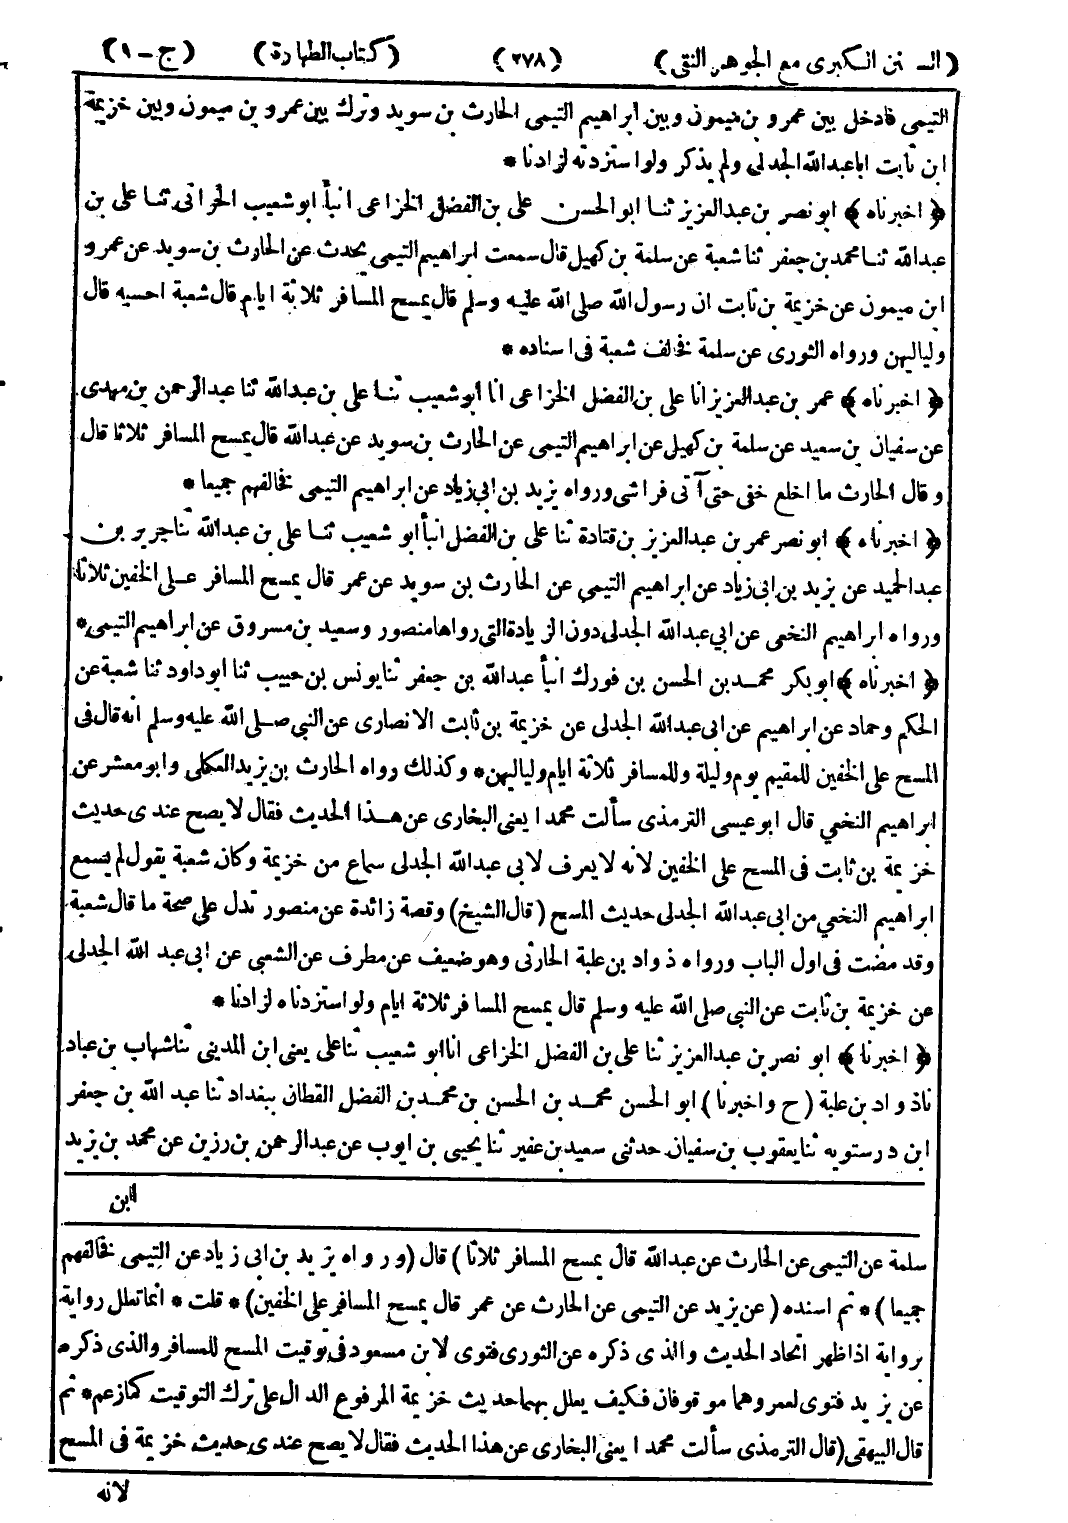 (السنن الكبرى مع الجوهر النقى) (٢٧٨) (كتاب الطهارة) (ج-١)
التيمى فادخل بين عمرو بن ميمون وبين ابراهيم التيمى الحارث بن سويد وترك بين عمرو بن ميمون وبين خزيمة
ابن ثابت ابا عبدالله الجدلى ولم يذكر ولو استزدته لزادنا *
﴿ اخبرناه ﴾ ابو نصر بن عبدالعزيز ثنا ابو الحسن على بن الفضل الخزاعى انبأ ابو شعيب الحرانى ثنا على بن
عبدالله ثنا محمد بن جعفر ثنا شعبة عن سلمة بن كهيل قال سمعت ابراهيم التيمى يحدث عن الحارث بن سويد عن عمرو
ابن ميمون عن خزيمة بن ثابت ان رسول الله صلى الله عليه وسلم قال يمسح المسافر ثلاثة ايام قال شعبة احسبه قال
ولياليهن ورواه الثورى عن سلمة فخالف شعبة فى اسناده *
﴿ اخبرناه ﴾ عمر بن عبدالعزيز انا على بن الفضل الخزاعى انا ابو شعيب ثنا على بن عبدالله ثنا عبدالرحمن بن مهدى
عن سفيان بن سعيد عن سلمة بن كهيل عن ابراهيم التيمى عن الحارث بن سويد عن عبدالله قال يمسح المسافر ثلاثا قال
وقال الحارث ما اخلع خفى حتى آتى فراشى ورواه يزيد بن ابى زياد عن ابراهيم التيمى فخالفهم جميعا *
﴿ اخبرناه ﴾ ابو نصر عمر بن عبدالعزيز بن قتادة ثنا على بن الفضل انبأ ابو شعيب ثنا على بن عبدالله ثنا جرير بن
عبدالحميد عن يزيد بن ابى زياد عن ابراهيم التيمي عن الحارث بن سويد عن عمر قال يمسح المسافر على الخفين ثلاثا
ورواه ابراهيم النخعى عن ابي عبدالله الجدلى دون الزيادة التى رواها منصور وسعيد بن مسروق عن ابراهيم التيمى *
﴿ اخبرناه ﴾ ابو بكر محمد بن الحسن بن فورك انبأ عبدالله بن جعفر ثنا يونس بن حبيب ثنا ابو داود ثنا شعبة عن
الحكم وحماد عن ابراهيم عن ابى عبدالله الجدلى عن خزيمة بن ثابت الانصارى عن النبي صلى الله عليه وسلم انه قال فى
المسح على الخفين للمقيم يوم وليلة وللمسافر ثلاثة ايام ولياليهن * وكذلك رواه الحارث بن يزيد العكلى وابو معشر عن
ابراهيم النخعي قال ابو عيسى الترمذى سألت محمدا يعنى البخارى عن هذا الحديث فقال لا يصح عندى حديث
خزيمة بن ثابت فى المسح على الخفين لانه لا يعرف لابى عبدالله الجدلى سماع من خزيمة وكان شعبة يقول لم يسمع
ابراهيم النخعي من ابى عبدالله الجدلى حديث المسح (قال الشيخ) وقصة زائدة عن منصور تدل على صحة ما قال شعبة
وقد مضت فى اول الباب ورواه ذواد بن علبة الحارثى وهو ضعيف عن مطرف عن الشعبى عن ابى عبد الله الجدلى
عن خزيمة بن ثابت عن النبي صلى الله عليه وسلم قال يمسح المسافر ثلاثة ايام ولو استزدناه لزادنا *
﴿ اخبرنا ﴾ ابو نصر بن عبدالعزيز ثنا على بن الفضل الخزاعى انا ابو شعيب ثنا على يعنى ابن المدينى ثنا شهاب بن عباد
نا ذواد بن علبة (ح واخبرنا) ابو الحسن محمد بن الحسن بن محمد بن الفضل القطان ببغداد ثنا عبد الله بن جعفر
ابن درستويه ثنا يعقوب بن سفيان حدثنى سعيد بن عفير ثنا يحيى بن ايوب عن عبدالرحمن بن رزين عن محمد بن يزيد
ابن
سلمة عن التيمى عن الحارث عن عبدالله قال يمسح المسافر ثلاثا) قال (ورواه يزيد بن ابى زياد عن التيمى فخالفهم
جميعا) * ثم اسنده (عن يزيد عن التيمى عن الحارث عن عمر قال يمسح المسافر على الخفين) * قلت * انما تعلل رواية
برواية اذا ظهر اتحاد الحديث والذى ذكره عن الثورى فتوى لابن مسعود فى توقيت المسح للمسافر والذى ذكره
عن يزيد فتوى لعمر وهما موقوفان فكيف يعلل بهما حديث خزيمة المرفوع الدال على ترك التوقيت كما زعم * ثم
قال البيهقى (قال الترمذى سألت محمدا يعنى البخارى عن هذا الحديث فقال لا يصح عندى حديث خزيمة فى المسح
لانه